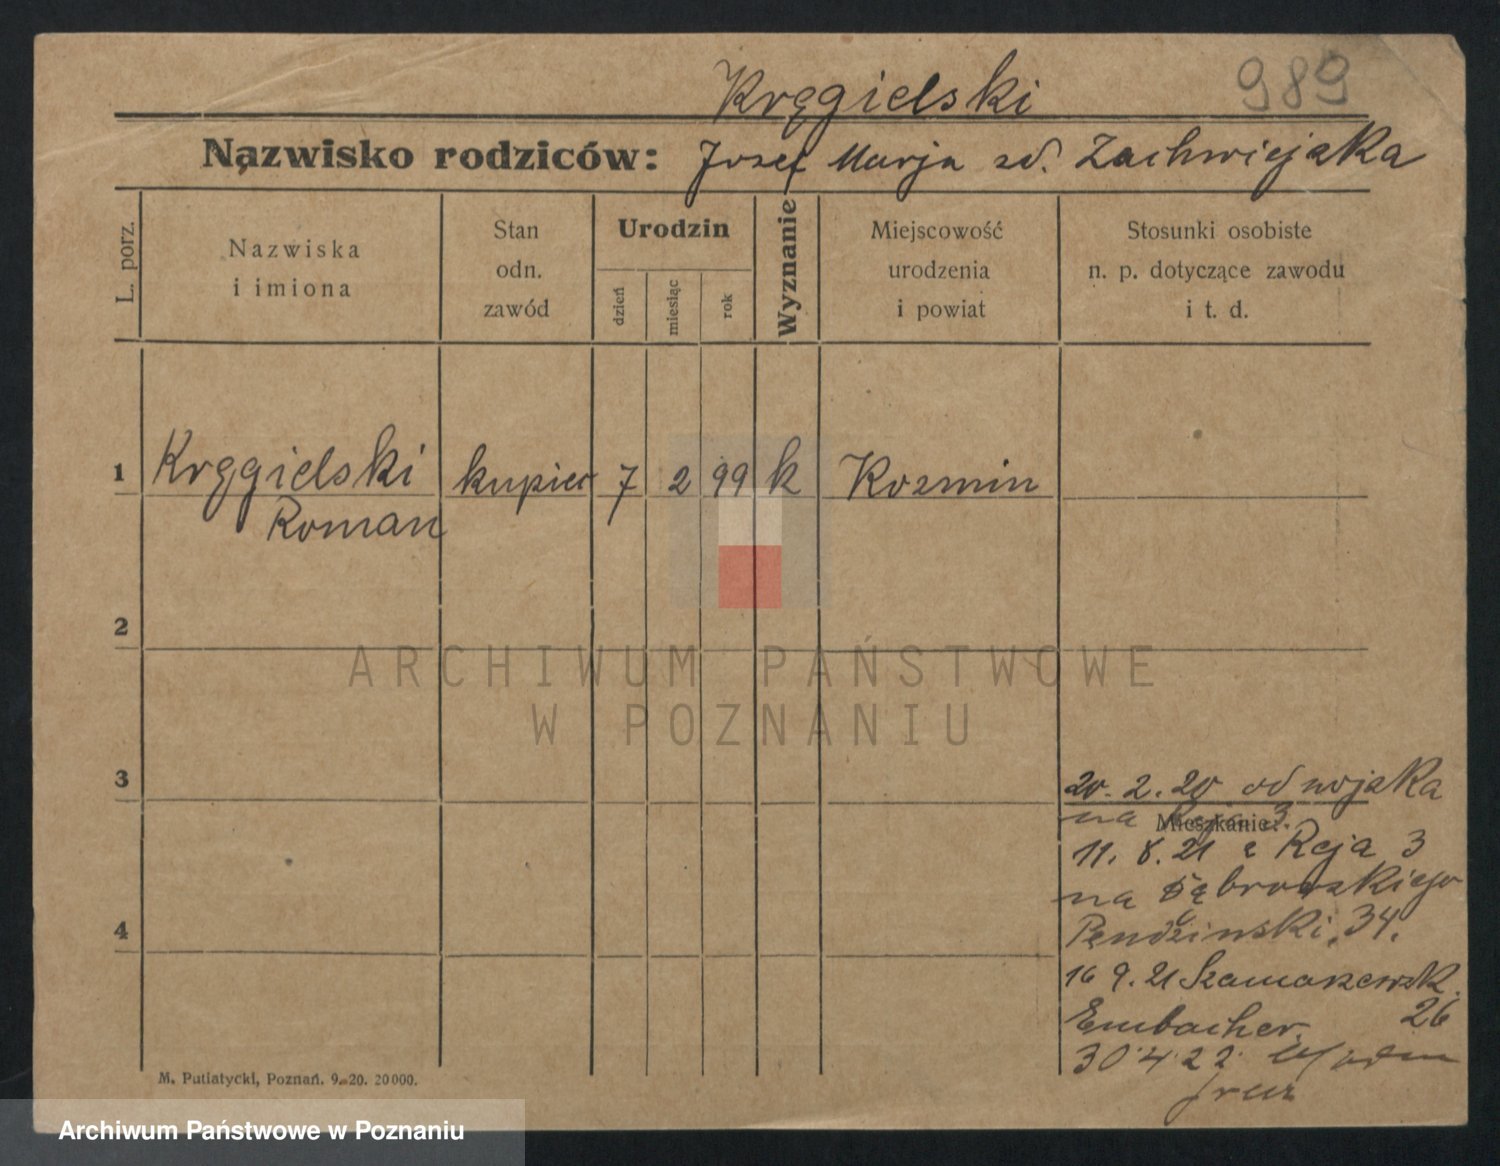 Kręgielski 989
Nazwisko rodziców: Józef Marja zd. Zachwiejska
L. porz.
Nazwiska
i imiona
Stan
odn.
zawód
Urodzin
dzień
miesiąc
rok
Wyznanie
Miejscowość
urodzenia
i powiat
Stosunki osobiste
n. p. dotyczące zawodu
i t. d.
1 Kręgielski kupiec 7 2 99 k Kozmin
Roman
2
ARCHIWUM PAŃSTWOWE
W POZNANIU
3
20. 2. 20 od wojska
na Reja 3.
Mieszkanie:
11. 8. 21 z Reja 3
na Dąbrowskiego
34.
4
16 9. 21 Szamarzewsk.
Embacher. 26
30 4 22
M. Putiatycki, Poznań. 9. 20. 20000.
Archiwum Państwowe w Poznaniu